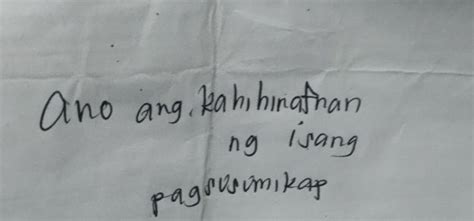 Ano ang kahihinatnan
ng isang
pagsusumikap